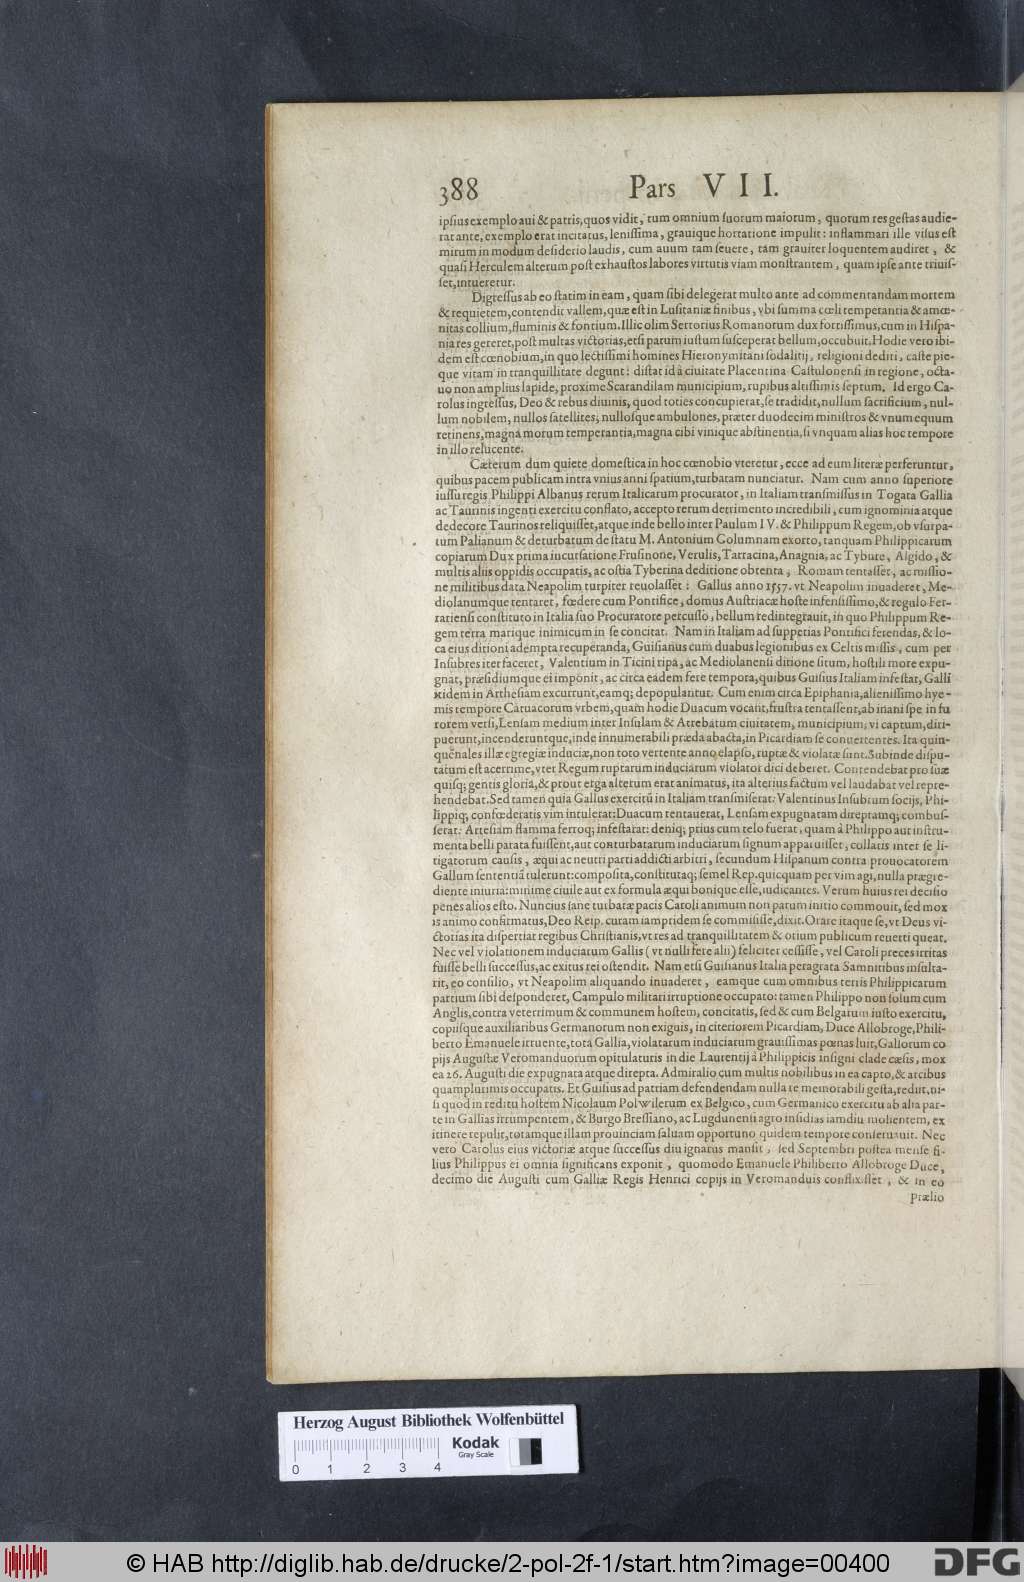 388 Pars VII.
ipſius exemplo aui & patris, quos vidit, tum omnium ſuorum maiorum, quorum res geſtas audie-
rat ante, exemplo erat incitatus, leniſſima, grauique hortatione impulit: inflammari ille viſus eſt
mirum in modum deſiderio laudis, cum auum tam ſeuere, tam grauiter loquentem audiret, &
quaſi Herculem alterum poſt exhauſtos labores virtutis viam monſtrantem, quam ipſe ante triuiſ-
ſet, intueretur.
Digreſſus ab eo ſtatim in eam, quam ſibi delegerat multo ante ad commentandam mortem
& requietem, contendit vallem, quæ eſt in Luſitaniæ finibus, vbi ſumma cœli temperantia & amœ-
nitas collium, fluminis & fontium. Illic olim Sertorius Romanorum dux fortiſſimus, cum in Hiſpa-
nia res gereret, poſt multas victorias, etſi parum iuſtum ſuſceperat bellum, occubuit. Hodie vero ibi-
dem eſt cœnobium, in quo lectiſſimi homines Hieronymitani ſodalitij, religioni dediti, caſte pie-
que vitam in tranquillitate degunt: diſtat id à ciuitate Placentina Caſtulonenſi in regione, octa-
uo non amplius lapide, proxime Scarandilam municipium, rupibus altiſſimis ſeptum. Id ergo Ca-
rolus ingreſſus, Deo & rebus diuinis, quod toties concupierat, ſe tradidit, nullum ſacrificium, nul-
lum nobilem, nullos ſatellites, nulloſque ambulones, præter duodecim miniſtros & vnum equum
retinens, magna morum temperantia, magna cibi vinique abſtinentia, ſi vnquam alias hoc tempore
in illo relucente.
Cæterum dum quiete domeſtica in hoc cœnobio vteretur, ecce ad eum literæ perferuntur,
quibus pacem publicam intra vnius anni ſpatium, turbatam nunciatur. Nam cum anno ſuperiore
iuſſu regis Philippi Albanus rerum Italicarum procurator, in Italiam tranſmiſſus in Togata Gallia
ac Taurinis ingenti exercitu conflato, accepto rerum detrimento incredibili, cum ignominia atque
dedecore Taurinos reliquiſſet, atque inde bello inter Paulum IV. & Philippum Regem, ob vſurpa-
tum Palianum & deturbatum de ſtatu M. Antonium Columnam exorto, tanquam Philippicarum
copiarum Dux prima incurſatione Fruſinone, Verulis, Tarracina, Anagnia, ac Tybure, Algido, &
multis aliis oppidis occupatis, ac oſtia Tyberina deditione obtenta, Romam tentaſſet, ac miſſio-
ne militibus data Neapolim turpiter reuolaſſet: Gallus anno 1557. vt Neapolim inuaderet, Me-
diolanumque tentaret, fœdere cum Pontifice, domus Auſtriacæ hoſte infenſiſſimo, & regulo Fer-
rarienſi conſtituto in Italia ſuo Procuratore percuſſo, bellum redintegrauit, in quo Philippum Re-
gem terra marique inimicum in ſe concitat. Nam in Italiam ad ſuppetias Pontifici ferendas, & lo-
ca eius ditioni adempta recuperanda, Guiſianus cum duabus legionibus ex Celtis miſſis, cum per
Inſubres iter faceret, Valentium in Ticini ripa, ac Mediolanenſi ditione ſitum, hoſtili more expu-
gnat, præſidiumque ei imponit, ac circa eadem fere tempora, quibus Guiſius Italiam infeſtat, Galli
itidem in Artheſiam excurrunt, eamq; depopulantur. Cum enim circa Epiphania, alieniſſimo hye-
mis tempore Catuacorum vrbem, quam hodie Duacum vocant, fruſtra tentaſſent, ab inani ſpe in fu
rorem verſi, Lenſam medium inter Inſulam & Atrebatum ciuitatem, municipium, vi captum, diri-
puerunt, incenderuntque, inde innumerabili præda abacta, in Picardiam ſe conuertentes. Ita quin-
quēnales illæ egregiæ induciæ, non toto vertente anno elapſo, ruptæ & violatæ ſunt. Subinde diſpu-
tatum eſt acerrime, vter Regum ruptarum induciarum violator dici deberet. Contendebat pro ſuæ
quiſq; gentis gloria, & prout erga alterum erat animatus, ita alterius factum vel laudabat vel repre-
hendebat. Sed tamen quia Gallus exercitū in Italiam tranſmiſerat: Valentinus Inſubrum ſocijs, Phi-
lippiq; confœderatis vim intulerat: Duacum tentauerat, Lenſam expugnatam direptamq; combuſ-
ſerat: Arteſiam flamma ferroq; infeſtarat: deniq; prius cum telo fuerat, quam à Philippo aut inſtru-
menta belli parata fuiſſent, aut conturbatarum induciarum ſignum apparuiſſet, collatis inter ſe li-
tigatorum cauſis, æqui ac neutri parti addicti arbitri, ſecundum Hiſpanum contra prouocatorem
Gallum ſententiā tulerunt: compoſita, conſtitutaq; ſemel Rep. quicquam per vim agi, nulla prægre-
diente iniuria: minime ciuile aut ex formula æqui bonique eſſe, iudicantes. Verum huius rei deciſio
penes alios eſto. Nuncius ſane turbatæ pacis Caroli animum non parum initio commouit, ſed mox
is animo confirmatus, Deo Reip. curam iampridem ſe commiſiſſe, dixit. Orare itaque ſe, vt Deus vi-
ctorias ita diſpertiat regibus Chriſtianis, vt res ad tranquillitatem & otium publicum reuerti queat.
Nec vel violationem induciarum Gallis (vt nulli fere alii) feliciter ceſſiſſe, vel Caroli preces irritas
fuiſſe belli ſucceſſus, ac exitus rei oſtendit. Nam etſi Guiſianus Italia peragrata Samnitibus inſulta-
rit, eo conſilio, vt Neapolim aliquando inuaderet, eamque cum omnibus terris Philippicarum
partium ſibi deſponderet, Campulo militari irruptione occupato: tamen Philippo non ſolum cum
Anglis, contra veterrimum & communem hoſtem, concitatis, ſed & cum Belgarum iuſto exercitu,
copiiſque auxiliaribus Germanorum non exiguis, in citeriorem Picardiam, Duce Allobroge, Phili-
berto Emanuele irruente, tota Gallia, violatarum induciarum grauiſſimas pœnas luit, Gallorum co
pijs Auguſtæ Veromanduorum opitulaturis in die Laurentij à Philippicis inſigni clade cæſis, mox
ea 26. Auguſti die expugnata atque direpta. Admiralio cum multis nobilibus in ea capto, & arcibus
quamplurimis occupatis. Et Guiſius ad patriam defendendam nulla re memorabili geſta, rediit, ni-
ſi quod in reditu hoſtem Nicolaum Polwilerum ex Belgico, cum Germanico exercitu ab alia par-
te in Gallias irrumpentem, & Burgo Breſſiano, ac Lugdunenſi agro inſidias iamdiu molientem, ex
itinere repulit, totamque illam prouinciam ſaluam opportuno quidem tempore conſeruauit. Nec
vero Carolus eius victoriæ atque ſucceſſus diu ignarus manſit, ſed Septembri poſtea menſe fi-
lius Philippus ei omnia ſignificans exponit, quomodo Emanuele Philiberto Allobroge Duce,
decimo die Auguſti cum Galliæ Regis Henrici copijs in Veromanduis conflixiſſet, & in eo
prælio
Herzog August Bibliothek Wolfenbüttel
Kodak
Gray Scale
0 1 2 3 4
© HAB http://diglib.hab.de/drucke/2-pol-2f-1/start.htm?image=00400
DFG